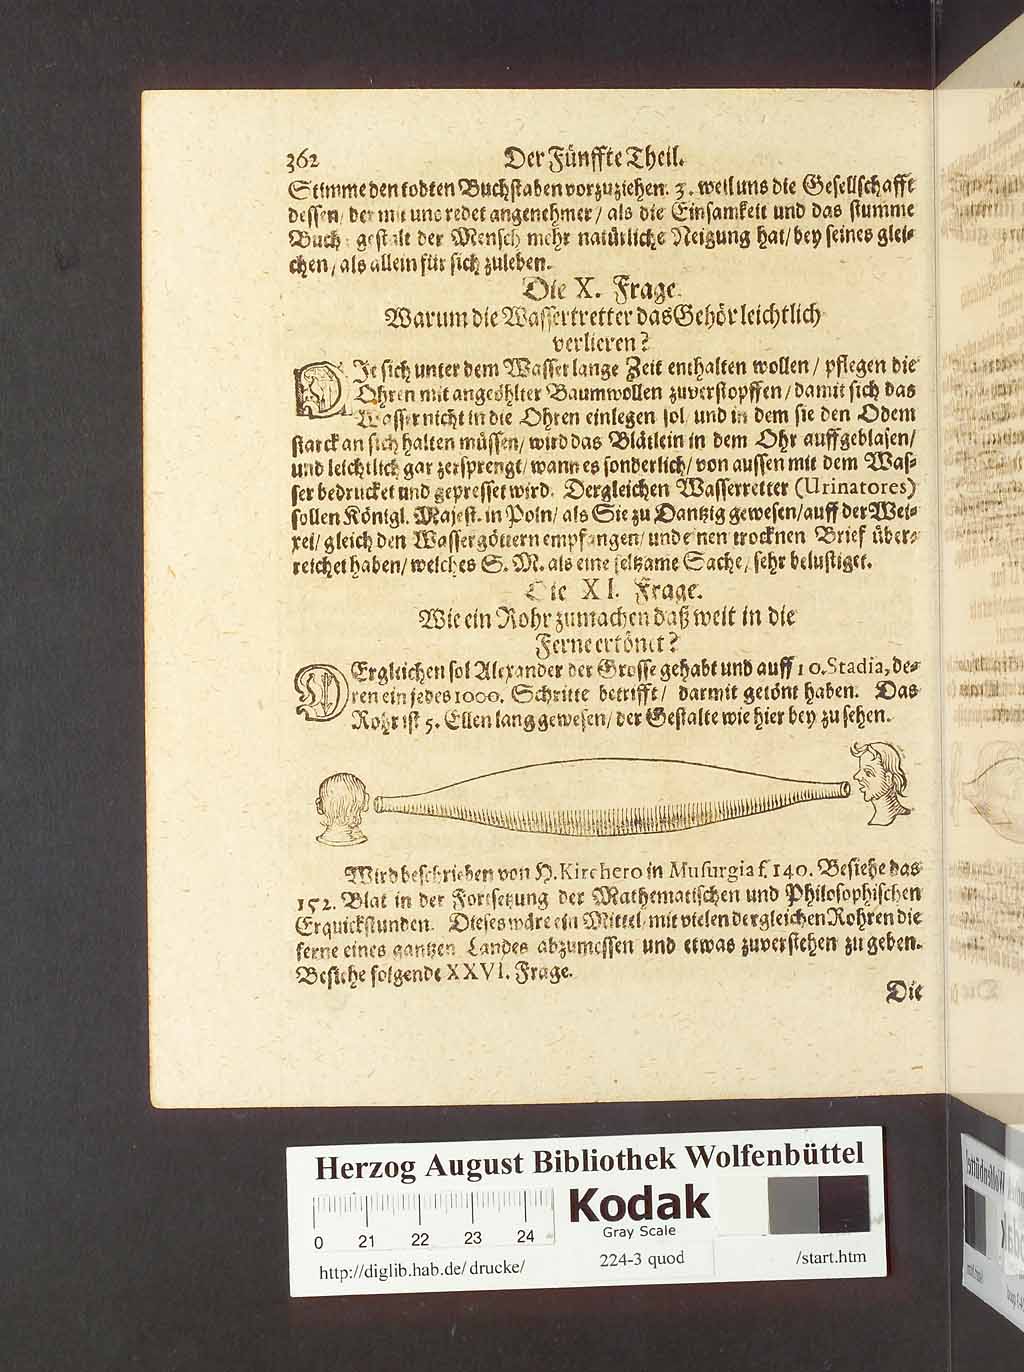 362 Der Fünffte Theil.
Stimme den todten Buchstaben vorzuziehen. 3. weil uns die Gesellschafft
dessen/ der mit uns redet angenehmer/ als die Einsamkeit und das stumme
Buch: gestalt der Mensch mehr natürliche Neigung hat/ bey seines glei-
chen/ als allein für sich zuleben.
Die X. Frage.
Warum die Wassertretter das Gehör leichtlich
verlieren?
DIe sich unter dem Wasser lange Zeit enthalten wollen/ pflegen die
Ohren mit angeöhlter Baumwollen zuverstopffen/ damit sich das
Wasser nicht in die Ohren einlegen sol/ und in dem sie den Odem
starck an sich halten müssen/ wird das Blätlein in dem Ohr auffgeblasen/
und leichtlich gar zersprengt/ wann es sonderlich/ von aussen mit dem Was-
ser bedrucket und gepresset wird. Dergleichen Wasserretter (Urinatores)
sollen Königl. Majest. in Poln/ als Sie zu Dantzig gewesen/ auff der Wei-
xel/ gleich den Wassergöttern empfangen/ und einen trocknen Brief über-
reichet haben/ welches S. M. als eine seltzame Sache/ sehr belustiget.
Die XI. Frage.
Wie ein Rohr zumachen daß weit in die
Ferne ertönet?
DErgleichen sol Alexander der Grosse gehabt und auff 10. Stadia, de-
ren ein jedes 1000. Schritte betrifft/ darmit getönt haben. Das
Rohr ist 5. Ellen lang gewesen/ der Gestalte wie hier bey zu sehen.
Wird beschrieben von H. Kirchero in Musurgia f. 140. Besiehe das
152. Blat in der Fortsetzung der Mathematischen und Philosophischen
Erquickstunden. Dieses wäre ein Mittel/ mit vielen dergleichen Rohren die
ferne eines gantzen Landes abzumessen und etwas zuverstehen zu geben.
Besiehe folgende XXVI. Frage.
Die
Herzog August Bibliothek Wolfenbüttel
0 21 22 23 24
Kodak
Gray Scale
http://diglib.hab.de/drucke/ 224-3 quod /start.htm